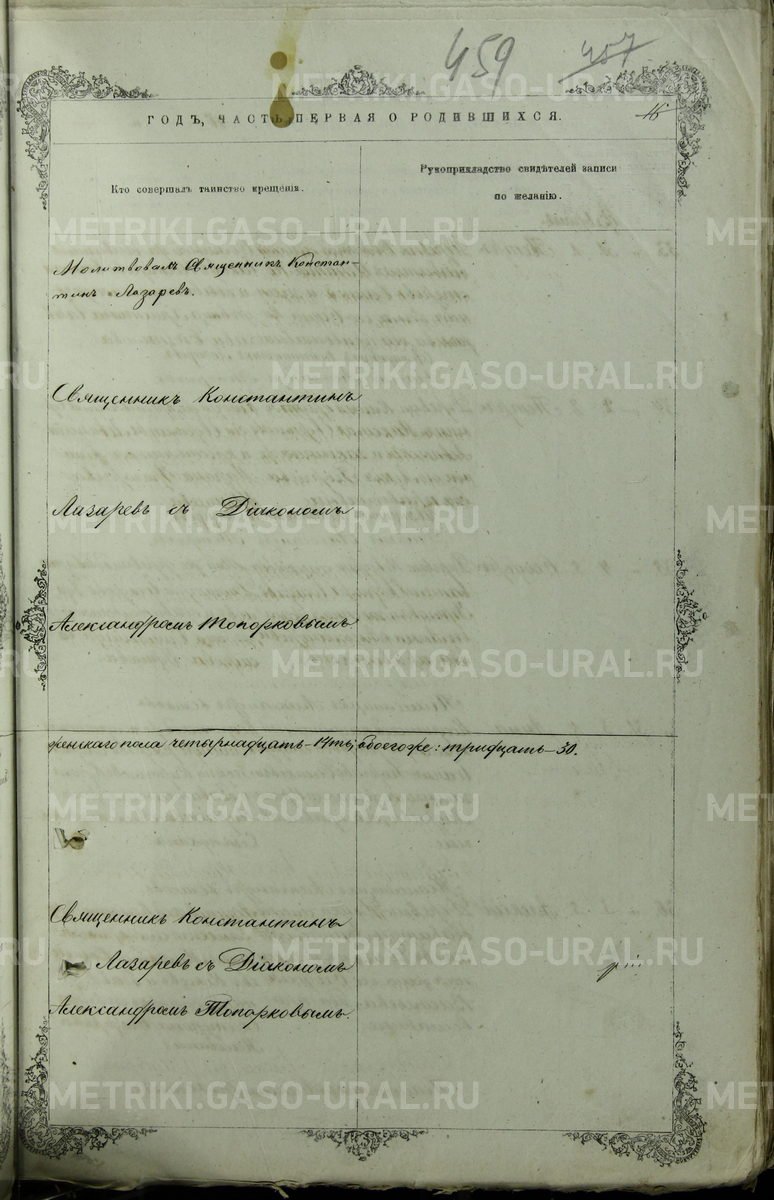 459 457
ГОДЪ, ЧАСТЬ ПЕРВАЯ О РОДИВШИХСЯ.
16
Кто совершалъ таинство крещенія.
Рукоприкладство свидѣтелей записи
по желанію.
Молитвовалъ Священникъ Констан-
тинъ Лазаревъ.
Священникъ Константинъ
Лазаревъ съ Діакономъ
Александромъ Топорковымъ
женскаго пола четырнадцать-14ть; обоего же: тридцать-30.
Священникъ Константинъ
Лазаревъ съ Діакономъ
Александромъ Топорковымъ.
METRIKI.GASO-URAL.RU